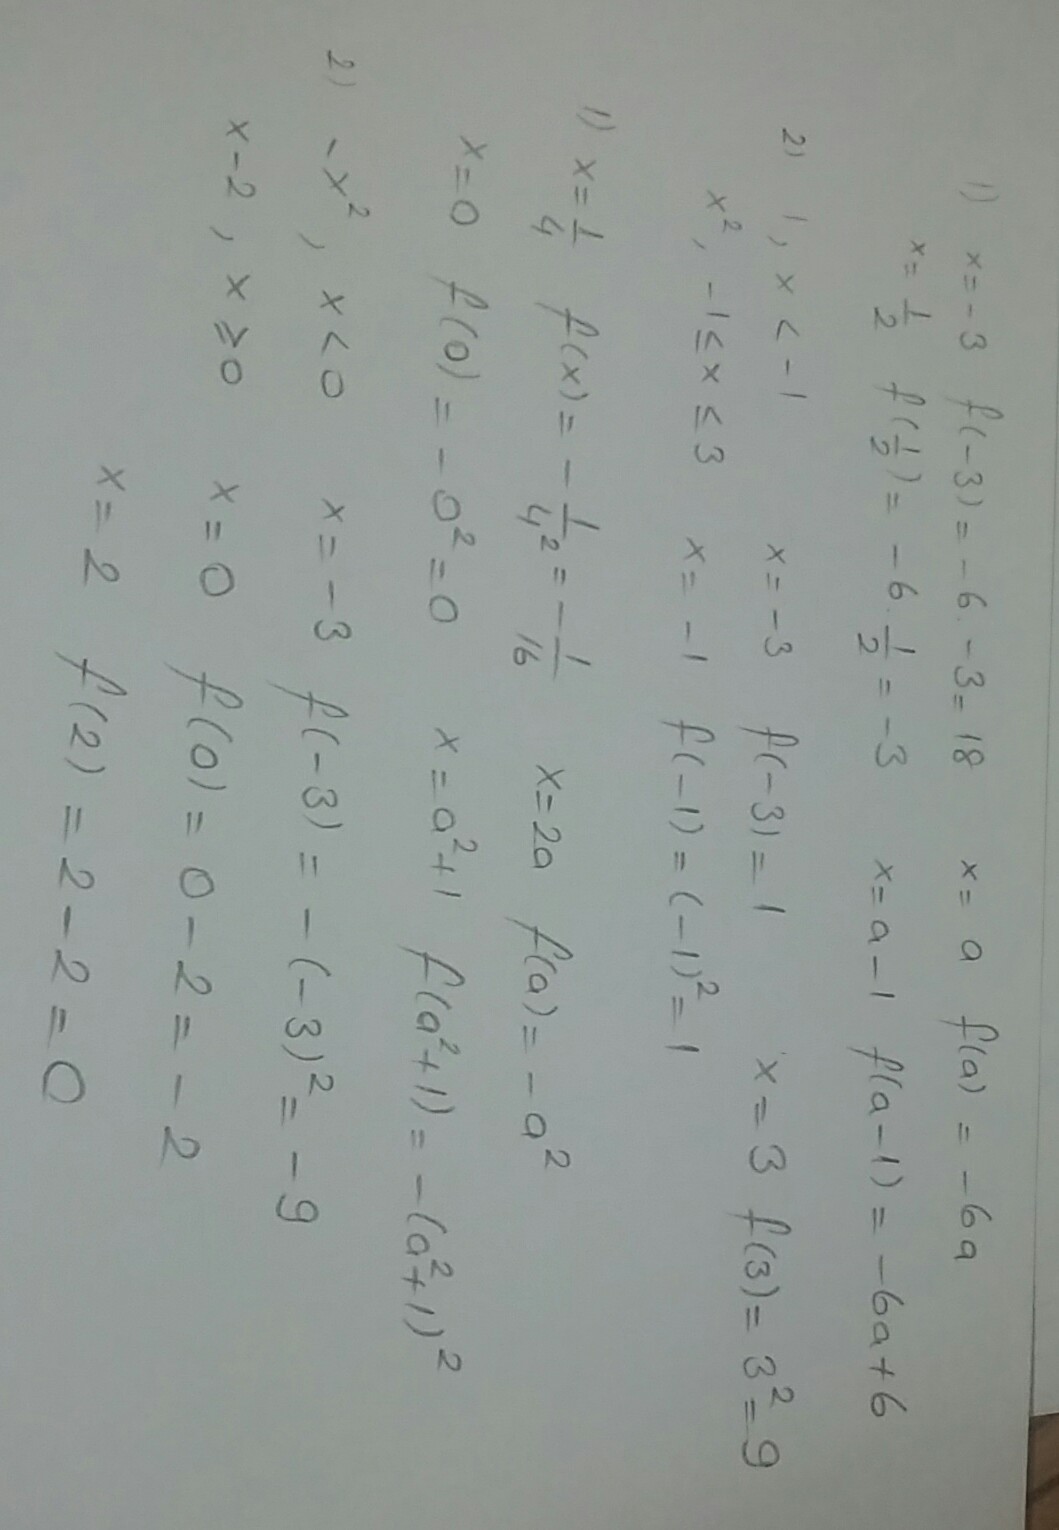 1) x=-3 f(-3)=-6·-3=18 x=a f(a)=-6a
x=1/2 f(1/2)=-6·1/2=-3 x=a-1 f(a-1)=-6a+6
2) 1, x<-1 x=-3 f(-3)=1 x=3 f(3)=3²=9
x², -1≤x≤3 x=-1 f(-1)=(-1)²=1
1) x=1/4 f(x)=-1/4²=-1/16 x=2a f(a)=-a²
x=0 f(0)=-0²=0 x=a²+1 f(a²+1)=-(a²+1)²
2) -x², x<0 x=-3 f(-3)=-(-3)²=-9
x-2, x≥0 x=0 f(0)=0-2=-2
x=2 f(2)=2-2=0